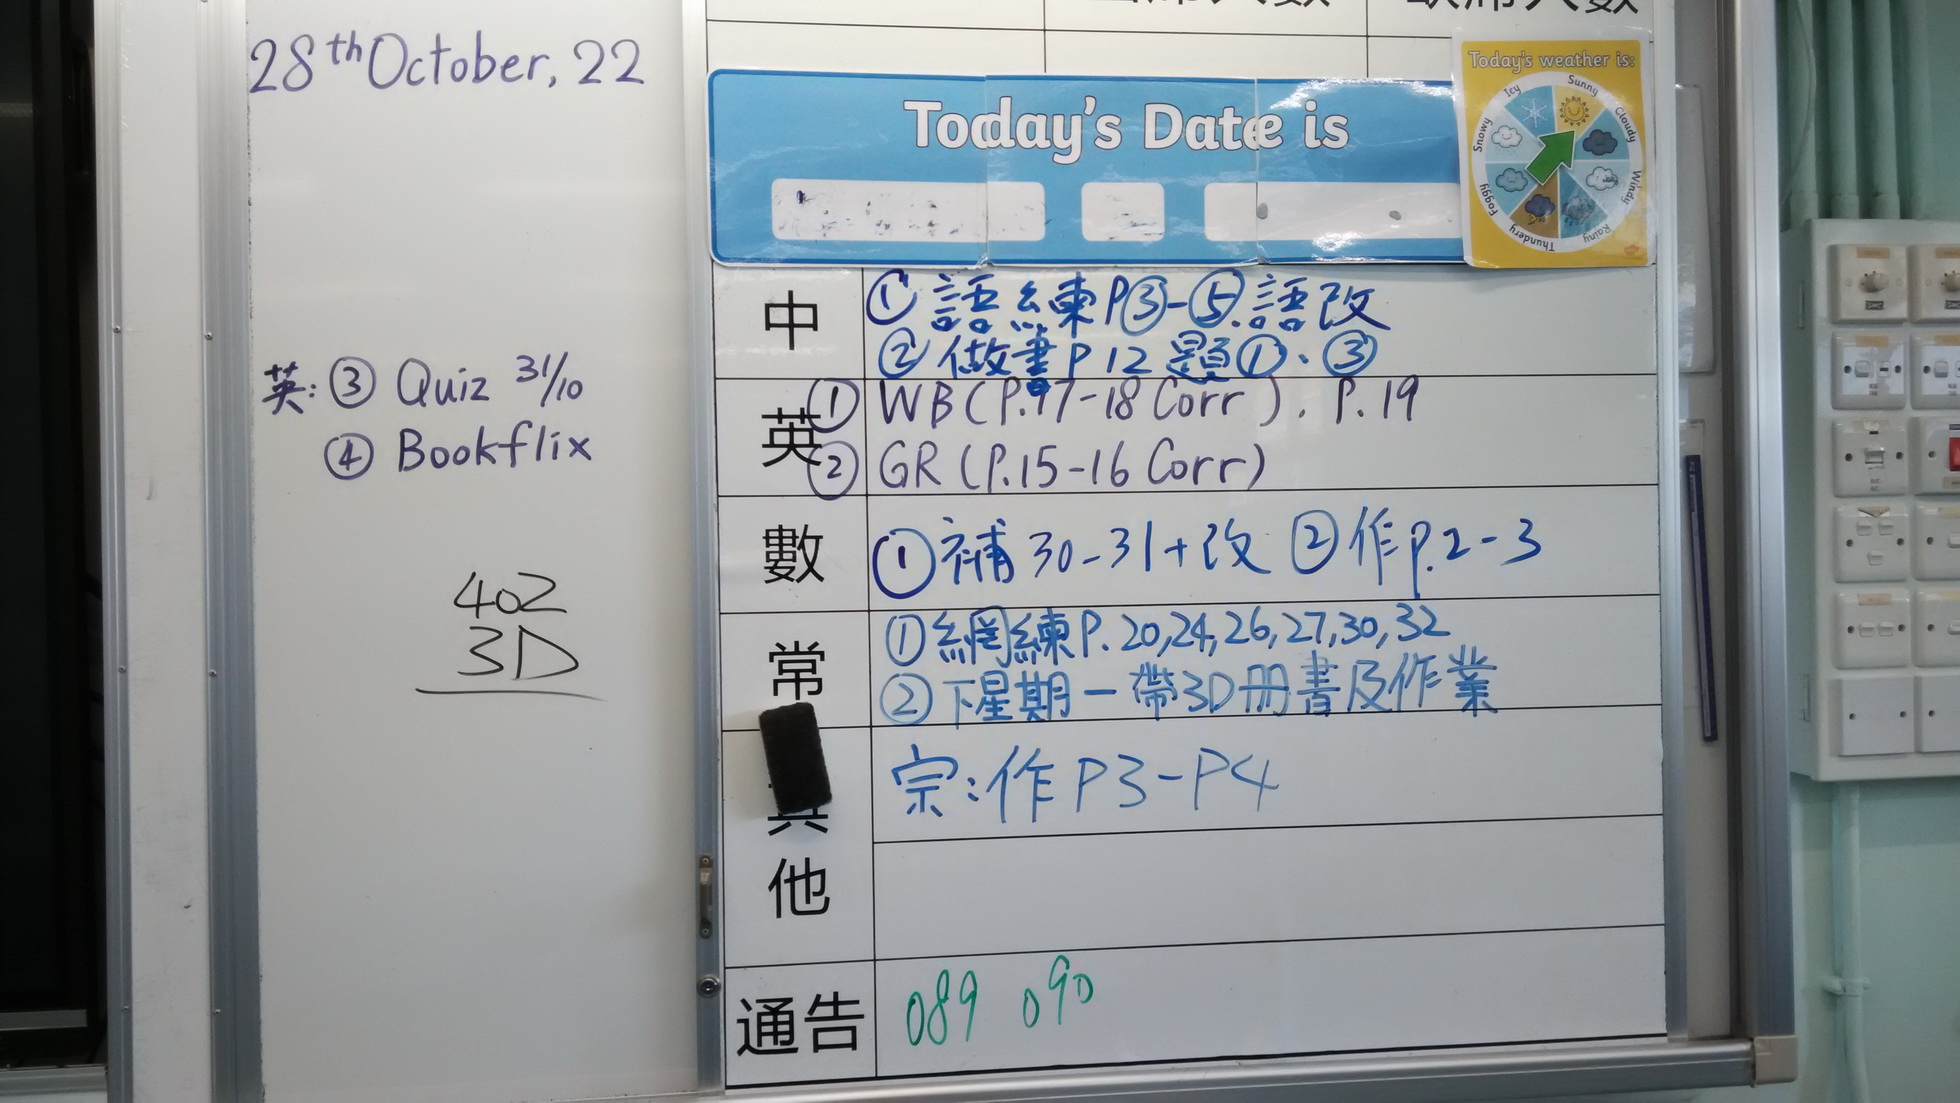 28th October, 22
英: ③ Quiz 31/10
④ Bookflix
402
3D
席人數 席人數
Today's Date is
Today's weather is:
Sunny
Cloudy
Windy
Rainy
Thundery
Foggy
Snowy
Icy
中
① 語練P③-⑤.語改
② 做書P12題①、③
英
① WB (P.17-18 Corr). P.19
② GR (P.15-16 Corr)
數
①補30-31+改 ②作p.2-3
常
①網練P.20,24,26,27,30,32
②下星期一帶3D冊書及作業
其他
宗:作P3-P4
通告
089 090